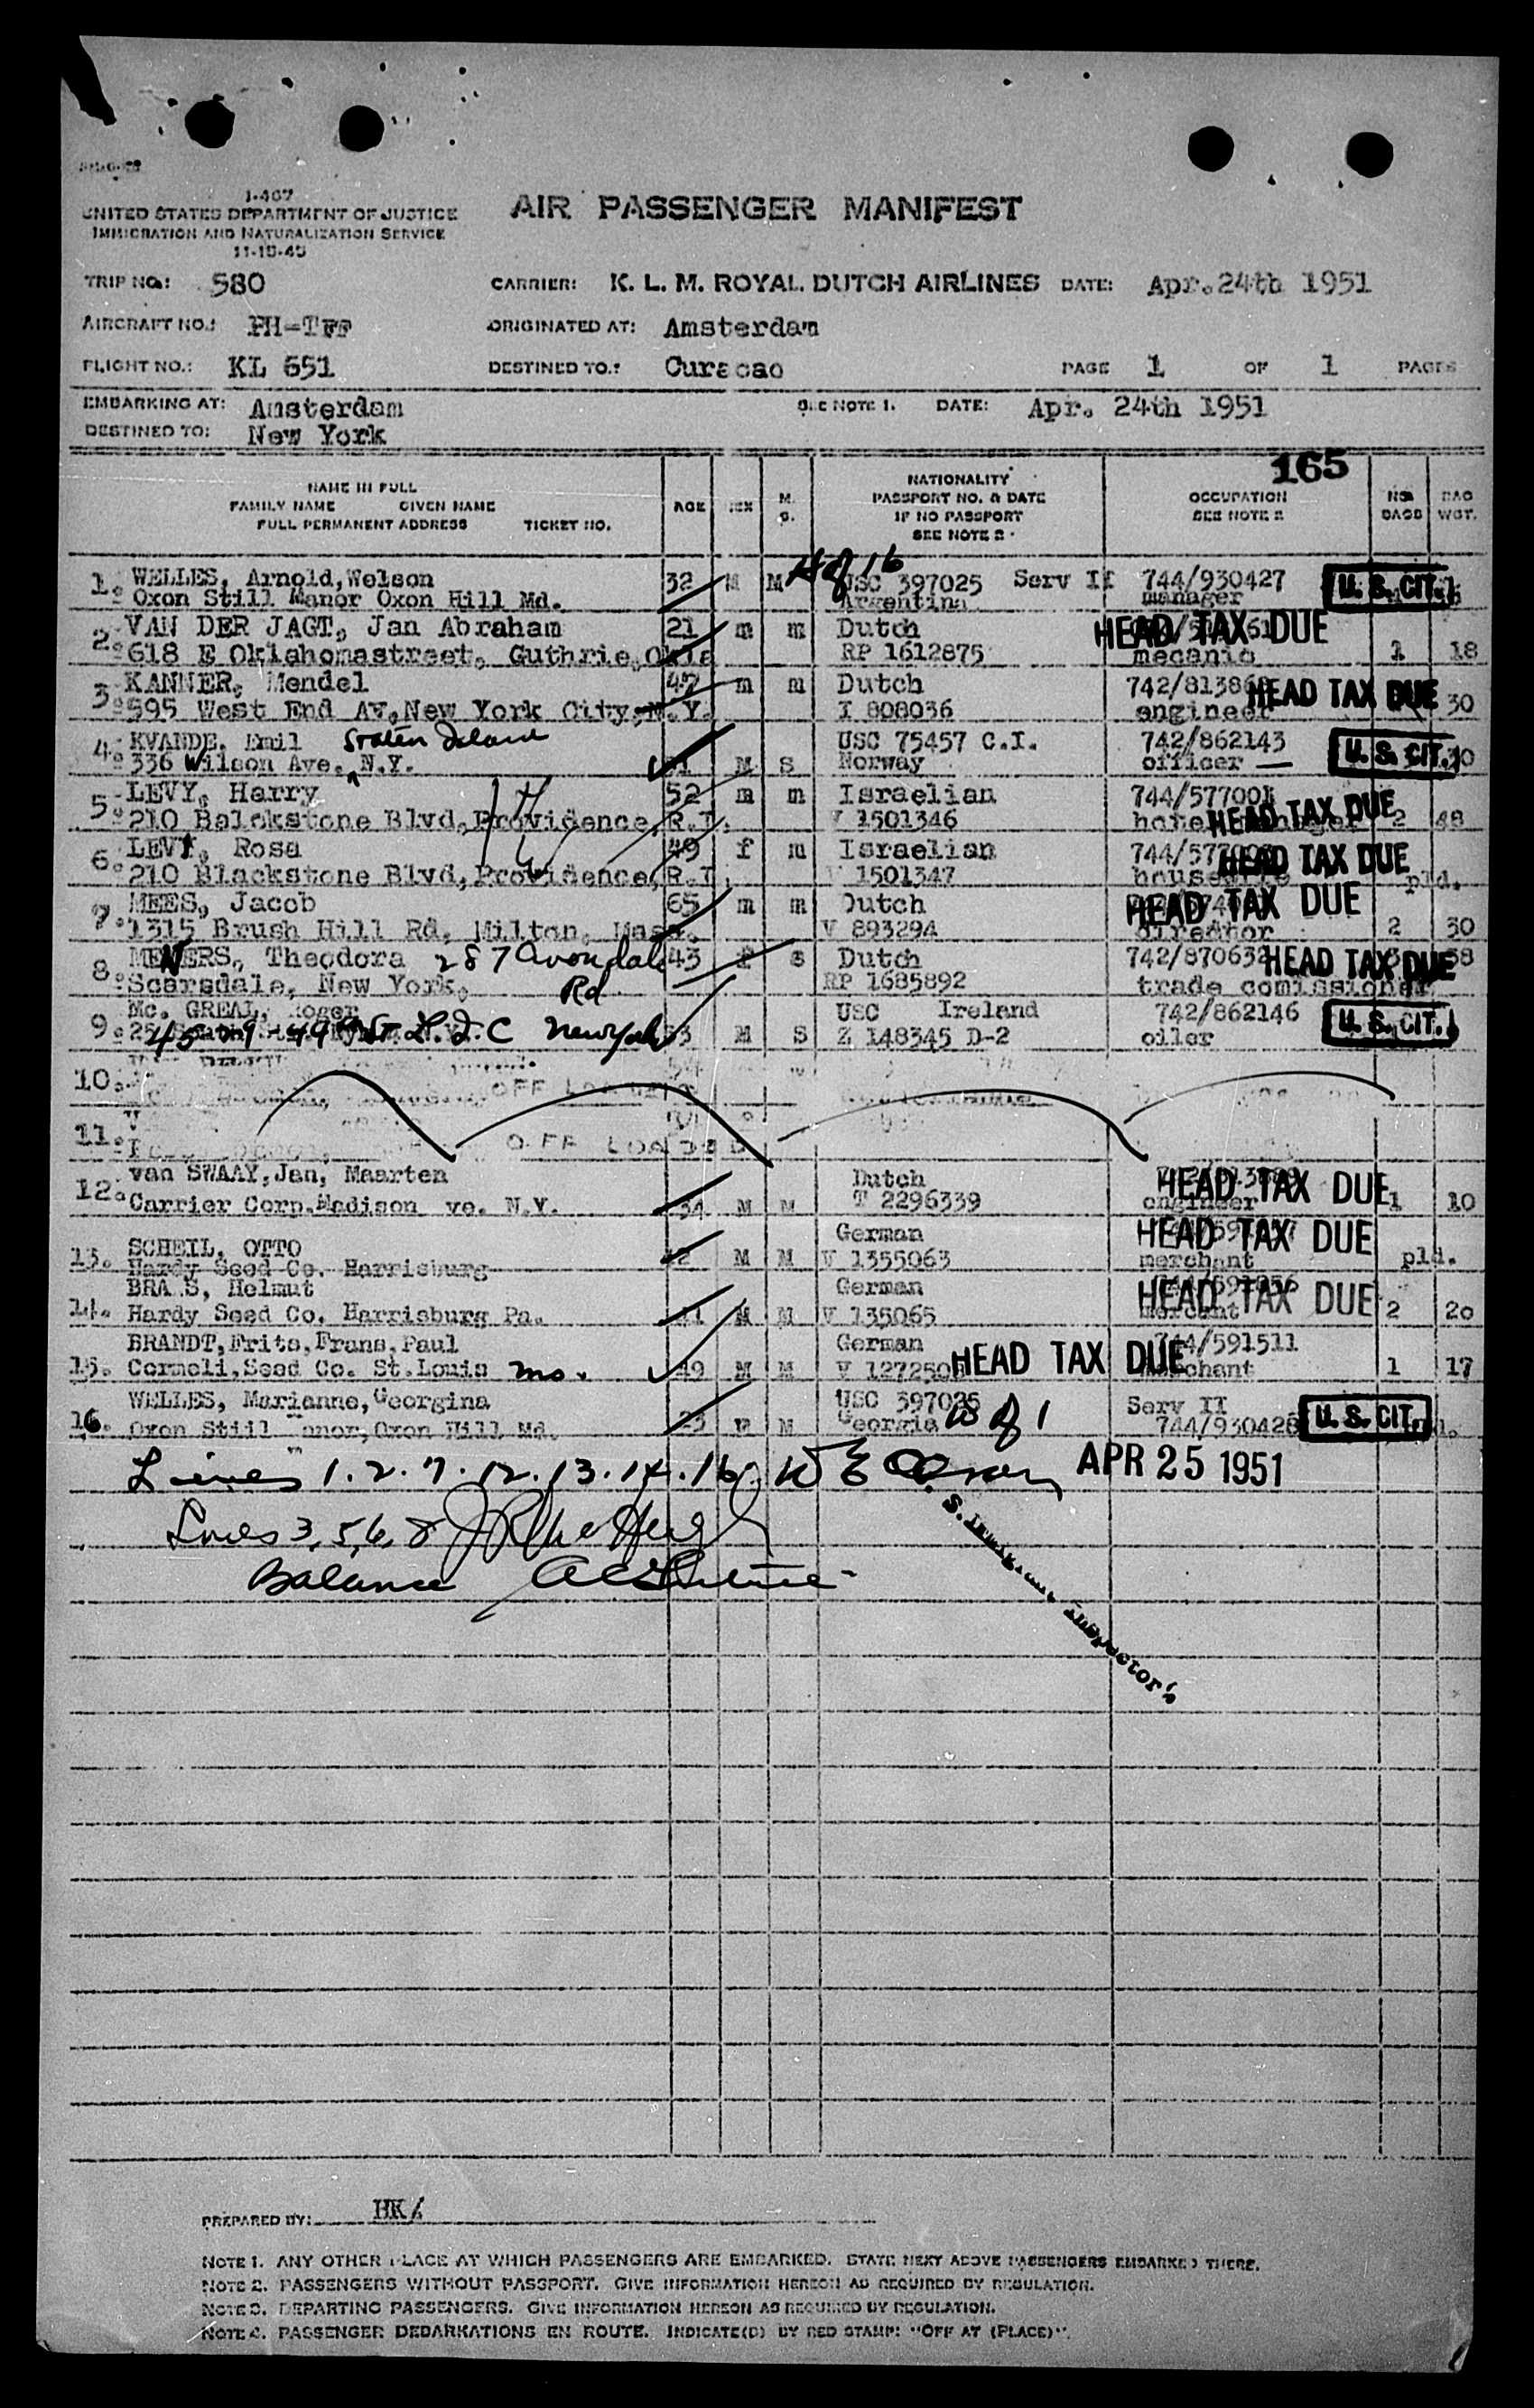 I-467
UNITED STATES DEPARTMENT OF JUSTICE
IMMIGRATION AND NATURALIZATION SERVICE
11-15-45
AIR PASSENGER MANIFEST
TRIP NO.: 580 CARRIER: K. L. M. ROYAL DUTCH AIRLINES DATE: Apr. 24th 1951
AIRCRAFT NO.: PH-TFF ORIGINATED AT: Amsterdam
FLIGHT NO.: KL 651 DESTINED TO.: Curacao PAGE 1 OF 1 PAGES
EMBARKING AT: Amsterdam SEE NOTE 1. DATE: Apr. 24th 1951
DESTINED TO: New York
165
NAME IN FULL
FAMILY NAME GIVEN NAME
FULL PERMANENT ADDRESS TICKET NO.
AGE SEX M. S.
NATIONALITY
PASSPORT NO. & DATE
IF NO PASSPORT
SEE NOTE 2
OCCUPATION
SEE NOTE 2
NO. BAGS
BAG WGT.
H of 16
1. WELLES, Arnold, Welson 32 M M USC 397025 Serv II 744/930427 U. S. CIT.
Oxon Still Manor Oxon Hill Md. Argentina manager
2. VAN DER JAGT, Jan Abraham 21 m m Dutch HEAD TAX DUE
618 E Oklahomastreet, Guthrie, Okla RP 1612875 mecanic 1 18
3. KANNER, Mendel 47 m m Dutch 742/81386 HEAD TAX DUE
595 West End Av, New York City, N.Y. I 808036 engineer 30
4. KVANDE, Emil Staten Island USC 75457 C.I. 742/862143 U. S. CIT.
336 Wilson Ave, N.Y. M S Norway officer
5. LEVY, Harry 52 m m Israelian 744/577001 HEAD TAX DUE
210 Balckstone Blvd, Providence, R.I. 1501346 2 48
6. LEVY, Rosa 49 f m Israelian HEAD TAX DUE
210 Blackstone Blvd, Providence, R.I. 1501347 pld.
7. MEES, Jacob 65 m m Dutch HEAD TAX DUE
1315 Brush Hill Rd, Milton, Mass. V 893294 director 2 30
8. MEYERS, Theodora 287 Avondale Rd 43 f s Dutch 742/870632 HEAD TAX DUE
Scarsdale, New York, RP 1685892 trade comissioner
9. Mc. GREAL, Roger USC Ireland 742/862146 U. S. CIT.
45-09-49th St. L.I.C New York M S Z 148345 D-2 oiler
10. OFF LOADED
11. OFF LOADED
12. van SWAAY, Jan, Maarten Dutch HEAD TAX DUE
Carrier Corp. Madison ve. N.Y. 34 M M T 2296339 engineer 1 10
13. SCHEIL, OTTO German HEAD TAX DUE
Hardy Seed Co. Harrisburg M M V 1355063 merchant pld.
14. BRA S, Helmut German HEAD TAX DUE
Hardy Seed Co. Harrisburg Pa. M M V 135065 2 20
15. BRANDT, Frits, Frans, Paul German 744/591511
Corneli, Seed Co. St. Louis mo. 49 M M HEAD TAX DUE 1 17
16. WELLES, Marianne, Georgina USC 397025 Serv II
Oxon Still Manor, Oxon Hill Md. 23 M Georgia W of 1 744/930428 U. S. CIT.
Lines 1.2.7.12.13.14.16 W E Olson APR 25 1951
Lines 3, 5, 6, 8
Balance
U. S. Immigrant Inspector's
PREPARED BY: HK/
NOTE 1. ANY OTHER PLACE AT WHICH PASSENGERS ARE EMBARKED. STATE NEXT ABOVE PASSENGERS EMBARKED THERE.
NOTE 2. PASSENGERS WITHOUT PASSPORT. GIVE INFORMATION HEREON AS REQUIRED BY REGULATION.
NOTE 3. DEPARTING PASSENGERS. GIVE INFORMATION HEREON AS REQUIRED BY REGULATION.
NOTE 4. PASSENGER DEBARKATIONS EN ROUTE. INDICATE(D) BY RED STAMP: "OFF AT (PLACE)".